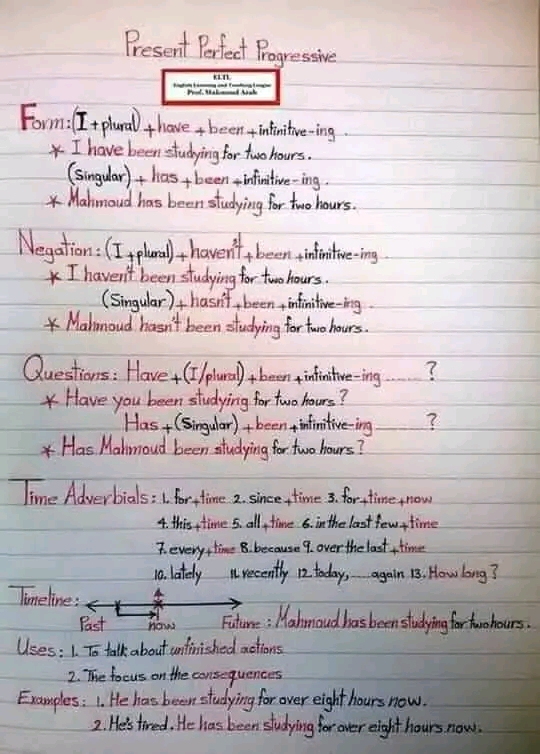 Present Perfect Progressive
ELTL
English Learning and Teaching League
Prof. Mahmoud Azab
Form: (I + plural) + have + been + infinitive-ing.
* I have been studying for two hours.
(Singular) + has + been + infinitive-ing.
* Mahmoud has been studying for two hours.
Negation: (I + plural) + haven't + been + infinitive-ing.
* I haven't been studying for two hours.
(Singular) + hasn't + been + infinitive-ing.
* Mahmoud hasn't been studying for two hours.
Questions: Have + (I/plural) + been + infinitive-ing ........ ?
* Have you been studying for two hours?
Has + (Singular) + been + infinitive-ing ........ ?
* Has Mahmoud been studying for two hours?
Time Adverbials: 1. for + time 2. since + time 3. for + time + now
4. this + time 5. all + time 6. in the last few + time
7. every + time 8. because 9. over the last + time
10. lately 11. recently 12. today, ..... again 13. How long?
Timeline:
Past now Future : Mahmoud has been studying for two hours.
Uses: 1. To talk about unfinished actions
2. The focus on the consequences
Examples: 1. He has been studying for over eight hours now.
2. He's tired. He has been studying for over eight hours now.